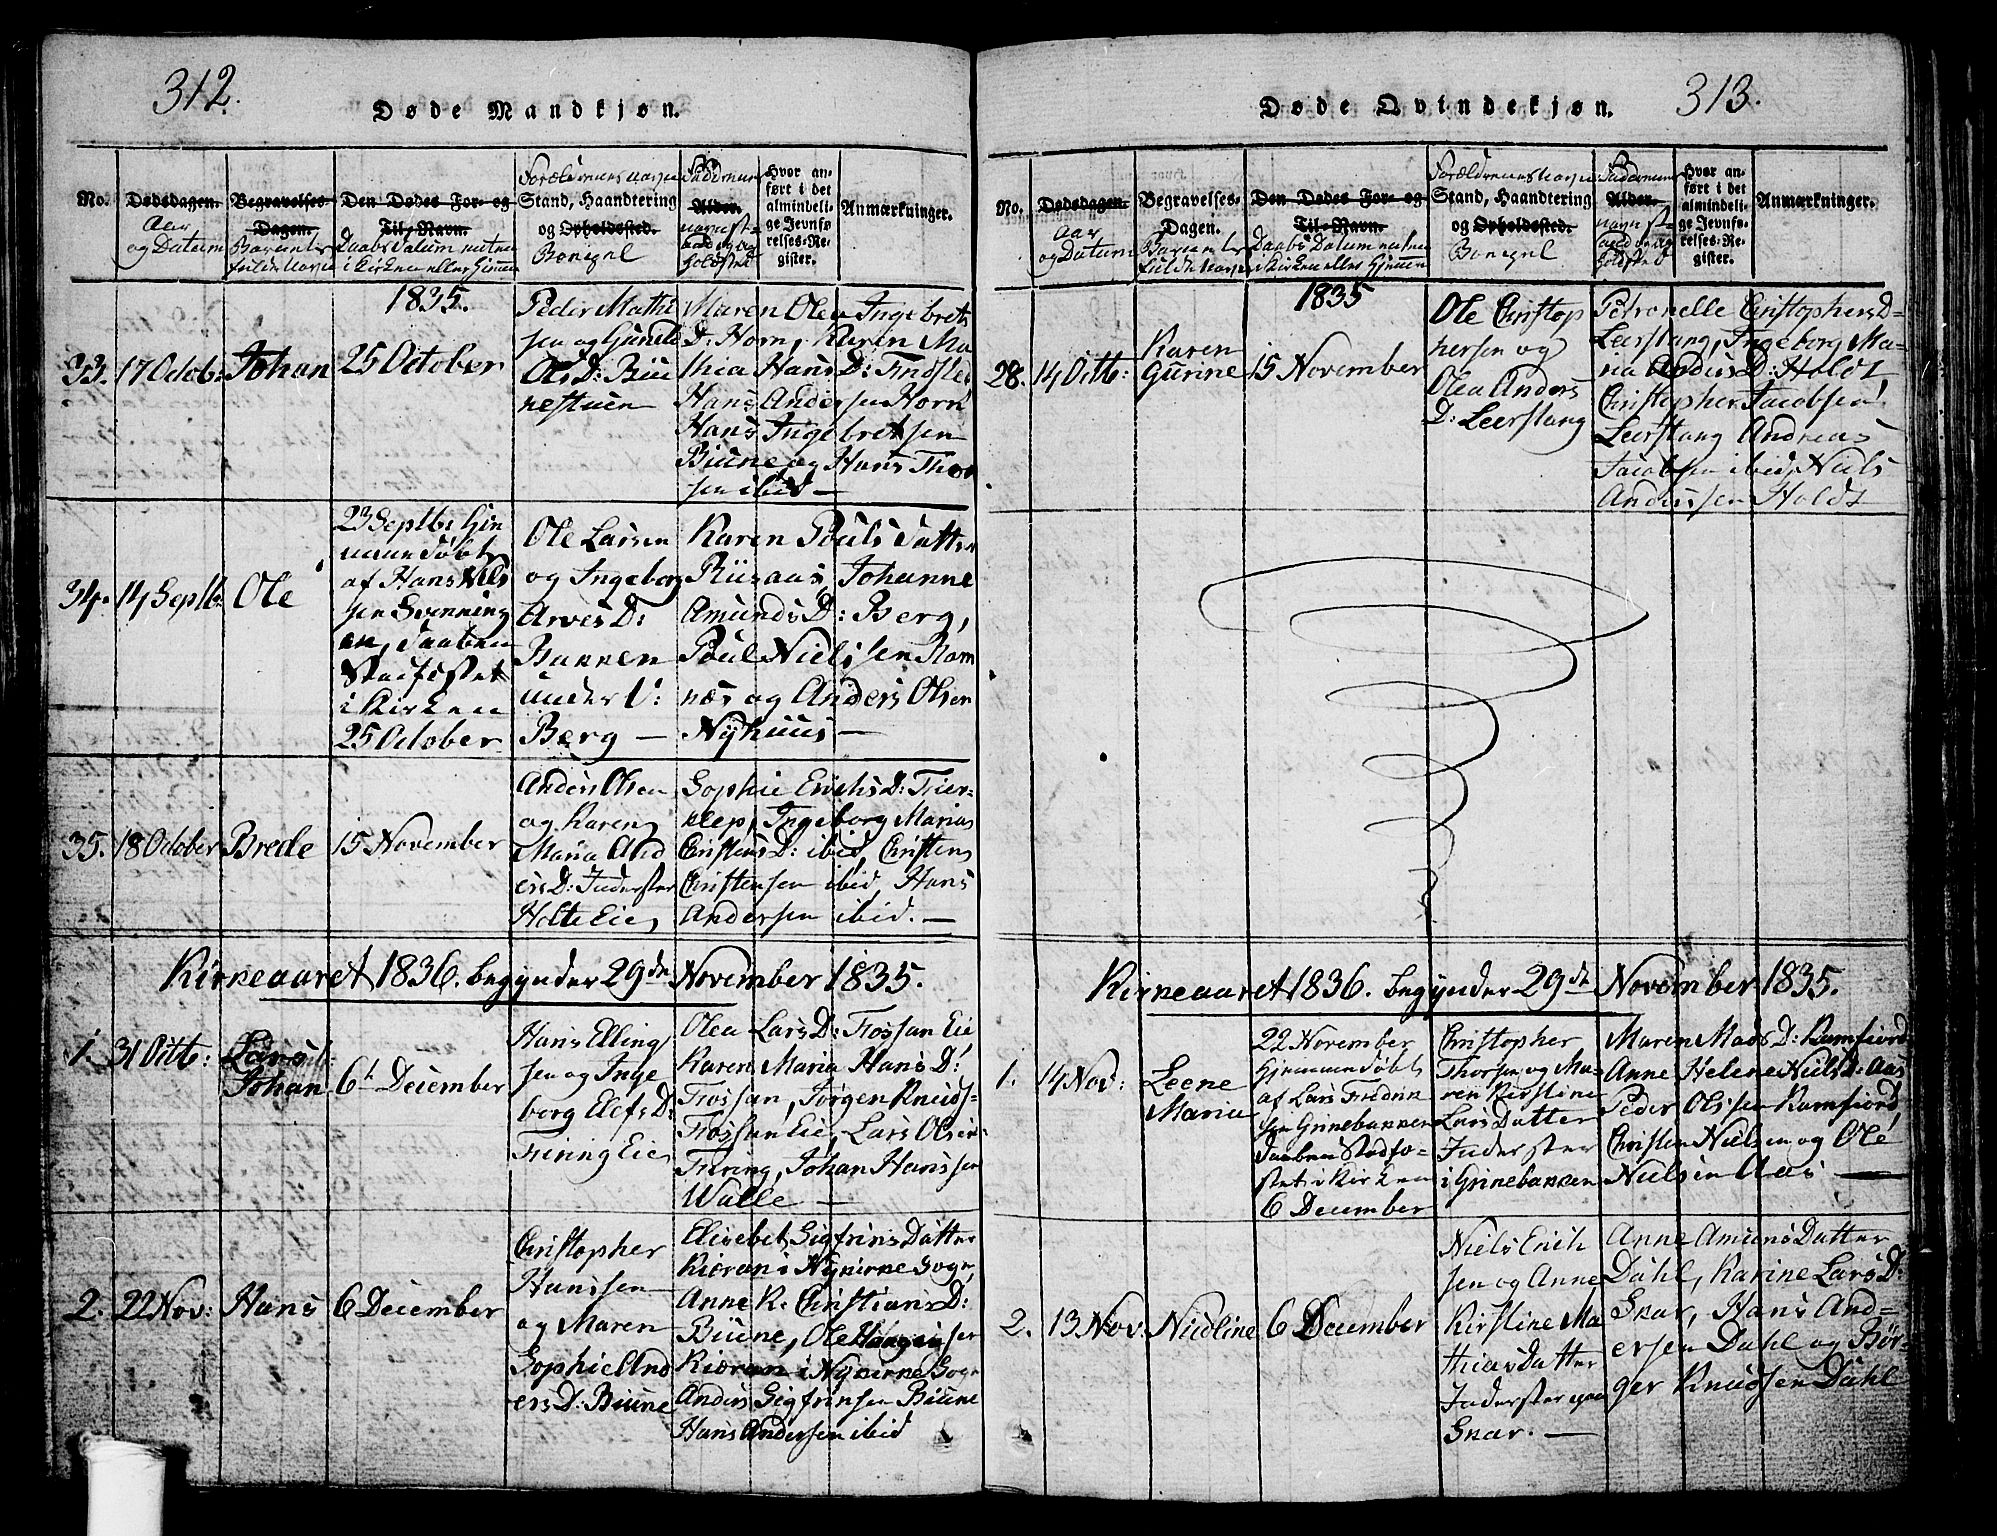 312.
Døde Mandkjøn.
No.
Dødsdagen.
Aar
og Datum
Begravelses-
Dagen.
Barnets
fulde Navn
Den Dødes For- og
Til-Navn.
Daabs Datum enten
i Kirken eller Hjemme
Forældrenes Navne
Stand, Haandtering
og Opholdssted.
Bonigæl
Fadderne
Alder.
Navne St-
and og op-
holdsted
Hvor an-
ført i det
almindeli-
ge Jevnfø-
relses-Re-
gister.
Anmærkninger.
1835.
33.
17 Octob:
Johan
25 October
Peder Mathi
sen og Gunild
Ols D: Biü
nestuen
Maren Olea Ingebrets
D: Horn, Karen Ma
thia Hans D:
Hans Andersen Horn
Hans Ingebretsen
Biüne og Hans Thor
sen ibid —
34.
14 Septb:
Ole
23 Septb: Hiem
me døbt
af Hans Niels
sen Svenning
en, Daaben
Stadfæstet
i Kirken
25 October
Ole Larsen
og Ingeborg
Arves D:
Bakken
under V:
Berg —
Karen Pouls Datter
Riisaas, Johanne
Amunds D: Berg,
Poul Nielssen Ram
næs og Anders Olsen
Nyhuus —
35.
18 October
Brede
15 November
Anders Olsen
og Karen
Maria And
ers D: Inderster
Holte Eie
Sophie Erichs D: Fier-
klep, Ingeborg Marias
Christens D: ibid, Christens
Christensen ibid, Hans
Andersen ibid. —
Kirkeaaret 1836. begynder 29de November 1835.
1.
31 Octb:
Lars
Johan
6t December
Hans Elling
sen og Inge
borg Elefs D:
Firing Eie
Olea Lars D: Fossan Eie
Karen Maria Hans D:
Fossan, Jørgen Knuds-
Fossan Eie, Lars Olsen
Firing, Johan Hanssen
Walle —
2.
22 Nov:
Hans
6 December
Christopher
Hanssen
og Maren
Sophie And
ers D: Biüne
Elisebet Sigfrins Datter
Kieran i Nykirke Sogn,
Anne K. Christians D:
Biüne, Ole Haagensen
Kieran i Nykirke Sogn
Anders Sigfrinsen Biüne
Hans Andersen ibid
Døde Qvindekjøn.
313.
No.
Dødsdagen.
Aar
og Datum
Begravelses-
Dagen.
Barnets
fulde Navn
Den Dødes For- og
Til-Navn.
Daabs Datum enten
i Kirken eller Hjemme
Forældrenes Navne
Stand, Haandtering
og Opholdssted.
Bonigæl
Fadderne
Alder.
Navne St-
and og op-
holdsted
Hvor an-
ført i det
almindeli-
ge Jevnfø-
relses-Re-
gister.
Anmærkninger.
1835
28.
14 Octb:
Karen
Gurine
15 November
Ole Christop
hersen og
Olea Anders
D: Leerstang
Petronelle Christophers D-
Leerstang, Ingeborg Ma-
ria Anders D: Holdt
Christopher Jacobsen
Leerstang Andreas
Jacobsen ibid, Niels
Anderssen Holdt
Kirkeaaret 1836. begynder 29de November 1835.
1.
14 Nov:
Leene
Maria
22 November
Hjemmedøbt
af Lars Fredrik
sen Grinebakken
Daaben Stadfæ-
stet i Kirken
6 December
Christopher
Thorsen og Ma-
ren Kirstine
Lars Datter
Inderster
i Grinebakken
Maren Mads D: Kamfiord
Anne Helene Niels D: Aas
Peder Olssen Kamfiord,
Christen Nielsen og Ole
Nielsen Aas —
2.
13 Nov.
Nicoline
6 December
Niels Erich
sen og Anne
Kirstine Ma
thias Datter
Inderster paa
Skar. —
Anne Amunds Datter
Dahl, Karine Lars D:
Skar, Hans And-
ersen Dahl og Bør-
ger Knudsen Dahl